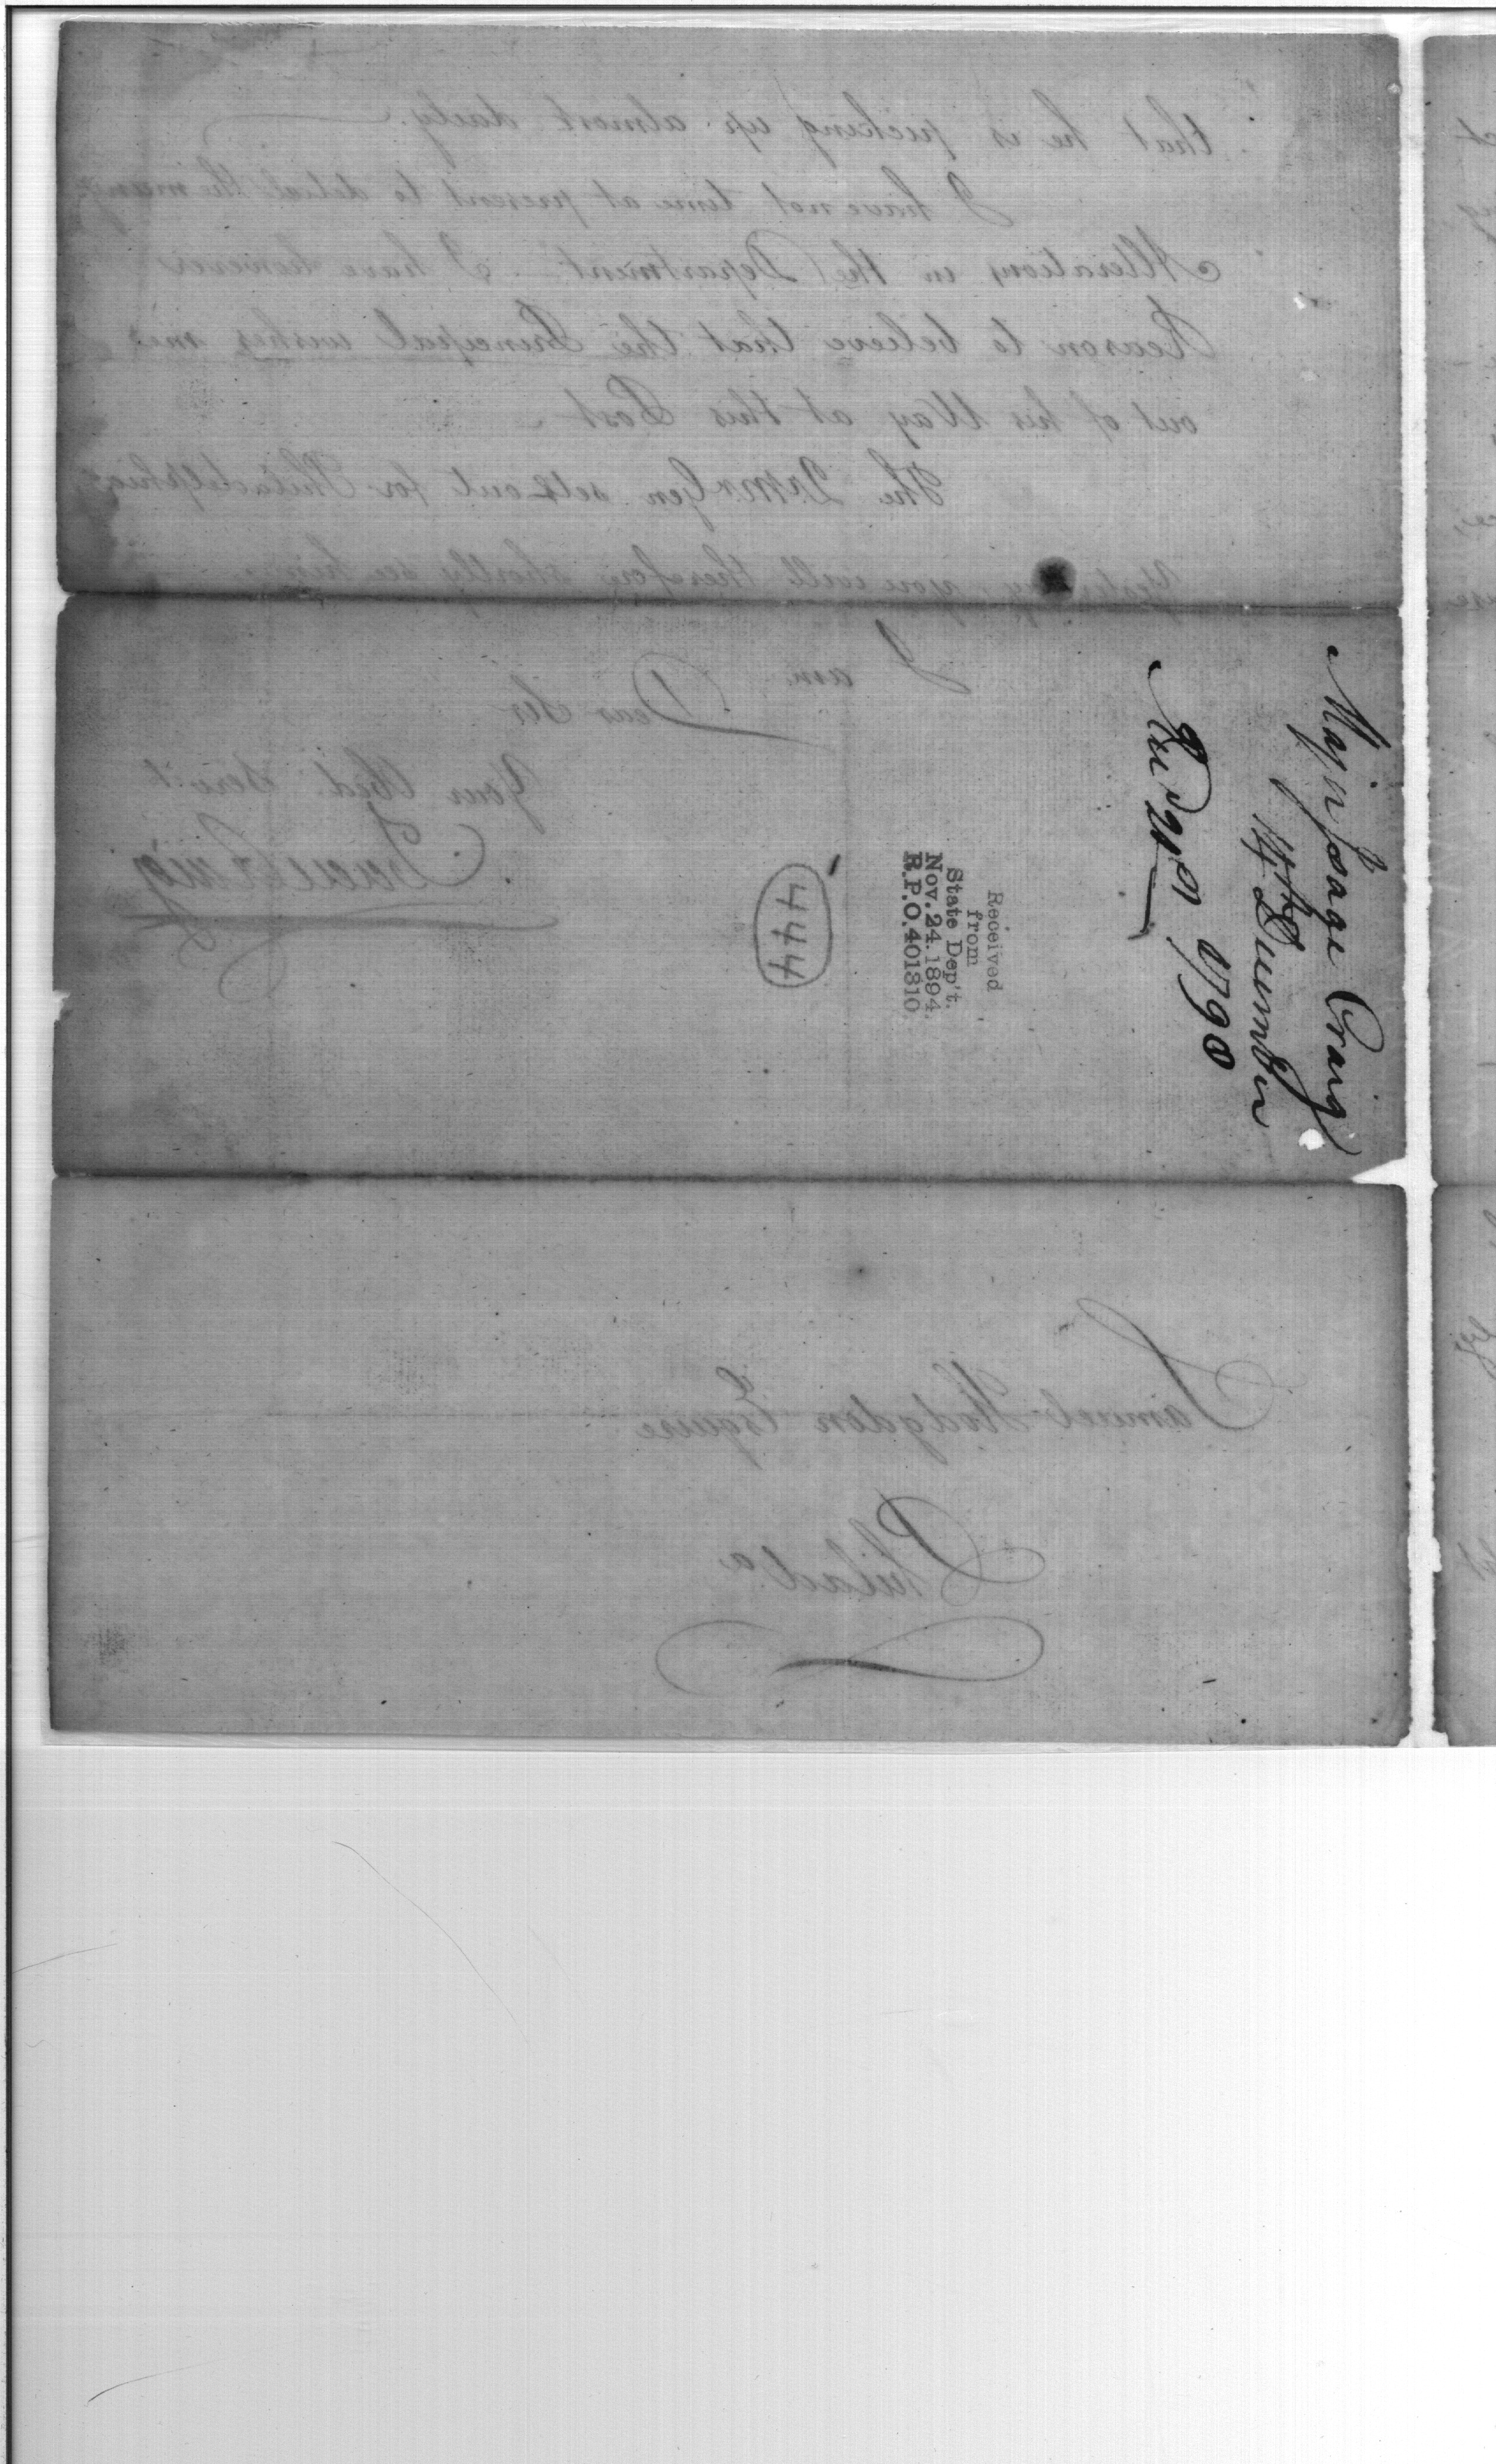 that he is picking up almost daily.
I have not time at present to detail the many
Alterations in the Department I have however
Reason to believe that the Principal wishes me
out of his Way at this Post
The QrMrGen setts out for Philadelphia
Yesterday, you will therefore shortly see him
I am
Dear Sir
Your Obed. Serv.t
Isaac Craig
Majr Isaac Craig
14th December
1798
Received
from
State Dep't.
Nov. 24. 1894.
R.P.O. 401310
444
Samuel Hodgdon Esquire
Philad.a